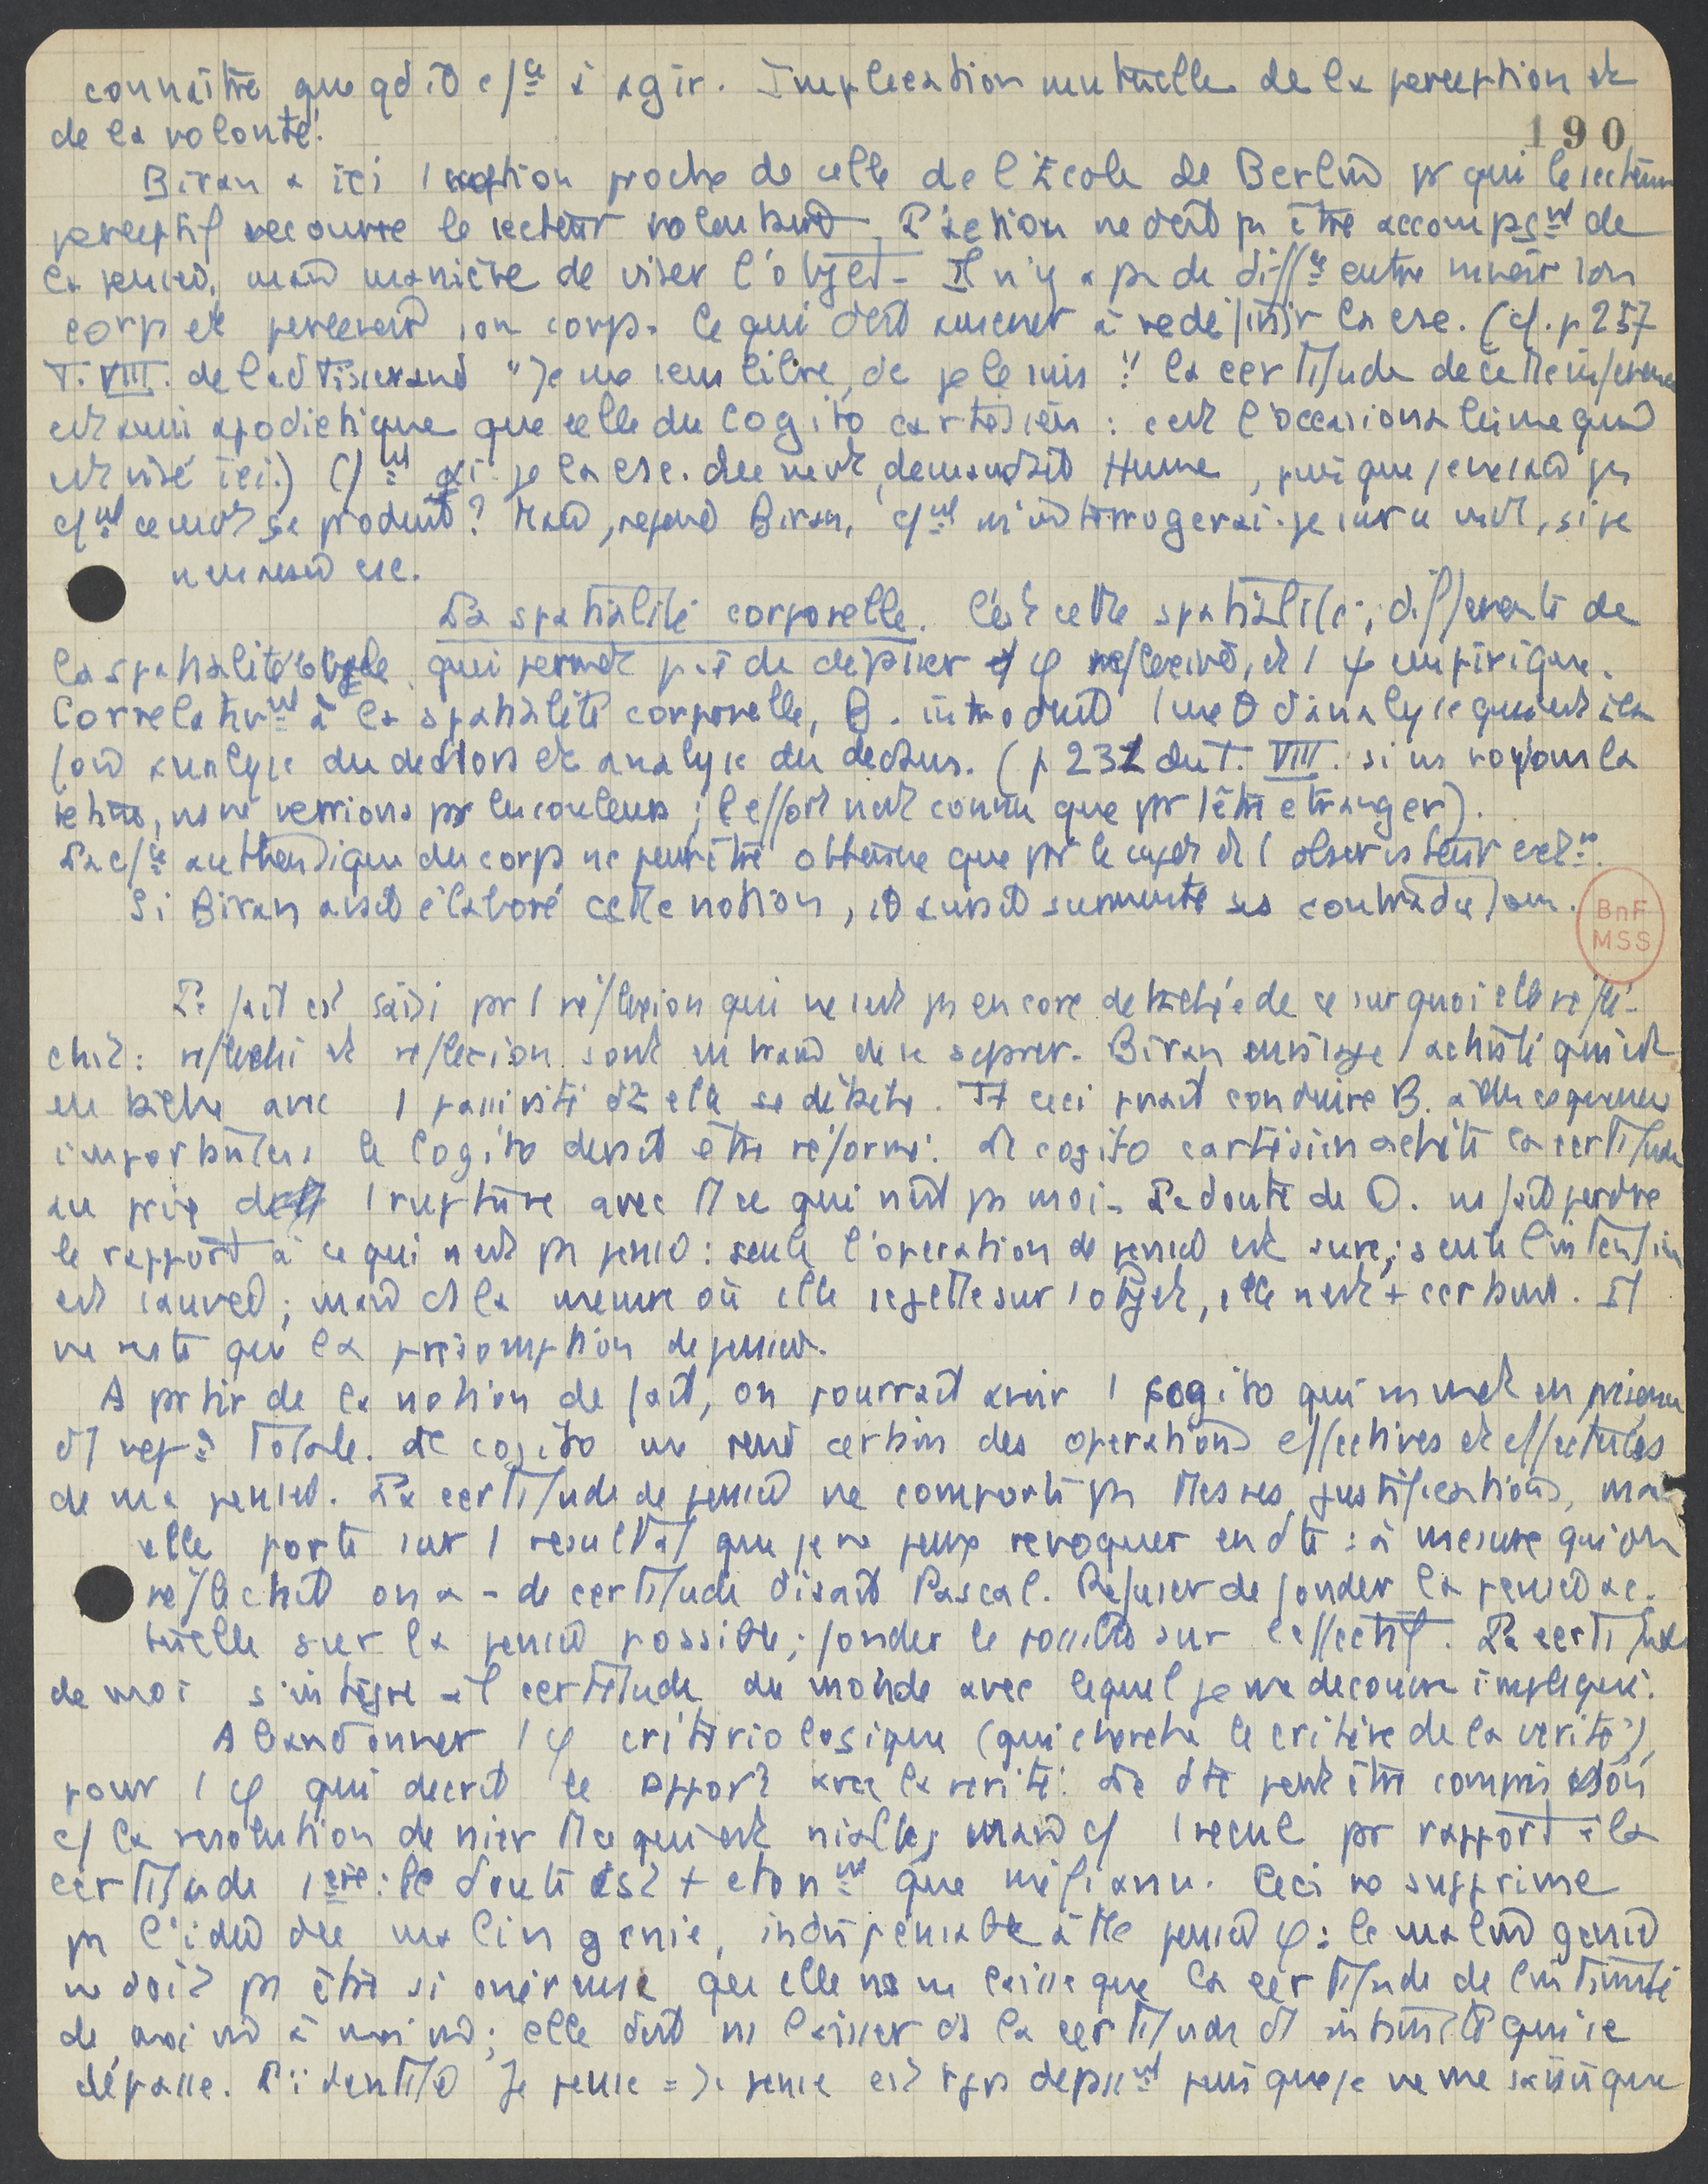 connaître que qd il cce à agir. Implication mutuelle de la perception et
de la volonté.
190
Biran a ici 1 notion proche de celle de l'Ecole de Berlin pr qui le secteur
perceptif recouvre le secteur volontaire. L'action ne doit pas être accompagnt de
la pensée, mais manière de viser l'objet. Il n'y a pas de diffce entre mouvoir son
corps et percevoir son corps. Ce qui doit amener à redéfinir la csc. (cf. p 257
T. VIII. de l'ed Tisserand "Je me sens libre, dc je le suis". La certitude de cette
est aussi apodictique que celle du Cogito cartésien : c'est l'occasionalisme qui
est visé ici.) Cmt ai-je la csc. du mvt, demandait Hume, puisque je ne sais pas
cmt ce mvt se produit? Mais, répond Biran, cmt m'interrogerai-je sur ce mvt, si je
n'en avais csc.
La spatialité corporelle. C'est cette spatialité, différente de
la spatialité qui permet de dépasser et φ réflexive, et 1 φ empirique.
Corrélativmt à la spatialité corporelle, B. introduit 1 d'analyse qui est à la
fois analyse du dedans et analyse du dehors. (p 232 du T. VIII. si ns voyions la
rétine, ns ne verrions pas les couleurs ; l'effort n'est connu que pr l'être étranger).
La cce authentique du corps ne peut être obtenue que pr le sujet et l'observateur extr.
Si Biran avait élaboré cette notion, il aurait surmonté ses contradictions.
BnF
MSS
Le fait est saisi pr 1 réflexion qui ne s'est pas encore détachée de ce sur quoi elle réflé-
chit : réfléchi et réflexion sont en train de se séparer. Biran envisage 1 activité qui est
avec 1 passivité où elle se débat. Et ceci pvait conduire B. à des conséquences
importantes : le Cogito devait être réformé. Le cogito cartésien achète la certitude
au prix de 1 rupture avec tt ce qui n'est pas moi. Le doute de D. ns fait perdre
le rapport à ce qui n'est pas pensée : seule l'opération de pensée est sûre, seule l'intention
est sauvée ; mais ds la mesure où elle se jette sur l'objet, elle n'est + certaine. Il
ne reste que la présomption de pensée.
A partir de la notion de fait, on pourrait avoir 1 cogito qui ns met en présence
Le cogito me rend certain des opérations effectives et effectuées
de ma pensée. La certitude de pensée ne comporte pas ttes ses justifications, mais
elle porte sur 1 résultat que je ne peux révoquer en dte : à mesure qu'on
réfléchit on a - de certitude disait Pascal. Refuser de fonder la pensée ac-
tuelle sur la pensée possible ; fonder le possible sur l'effectif. La certitude
de moi s'intègre à 1 certitude du monde avec lequel je me découvre impliqué.
Abandonner 1 φ critériologique (qui cherche le critère de la vérité),
pour 1 φ qui décrit le rapport avec la vérité. Le dte peut être compris non
c/ la résolution de nier tt ce qui est niable, mais c/ 1 recul pr rapport à la
certitude 1ère : le doute est + étonnt que méfiance. Ceci ne supprime
pas l'idée du malin génie, indispensable à tte pensée φ : le malin génie
ne doit pas être si onéreuse qu'elle ns ne laisse que la certitude de l'intimité
de moi à moi ; elle doit ns laisser ds la certitude d'1 intimité qui se
dépasse. L'identité Je pense = Je pense est tjrs puisque je ne me saisis que